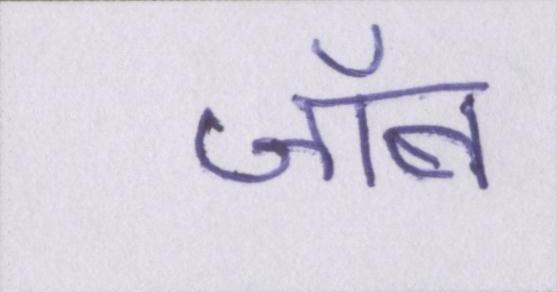 जॉब